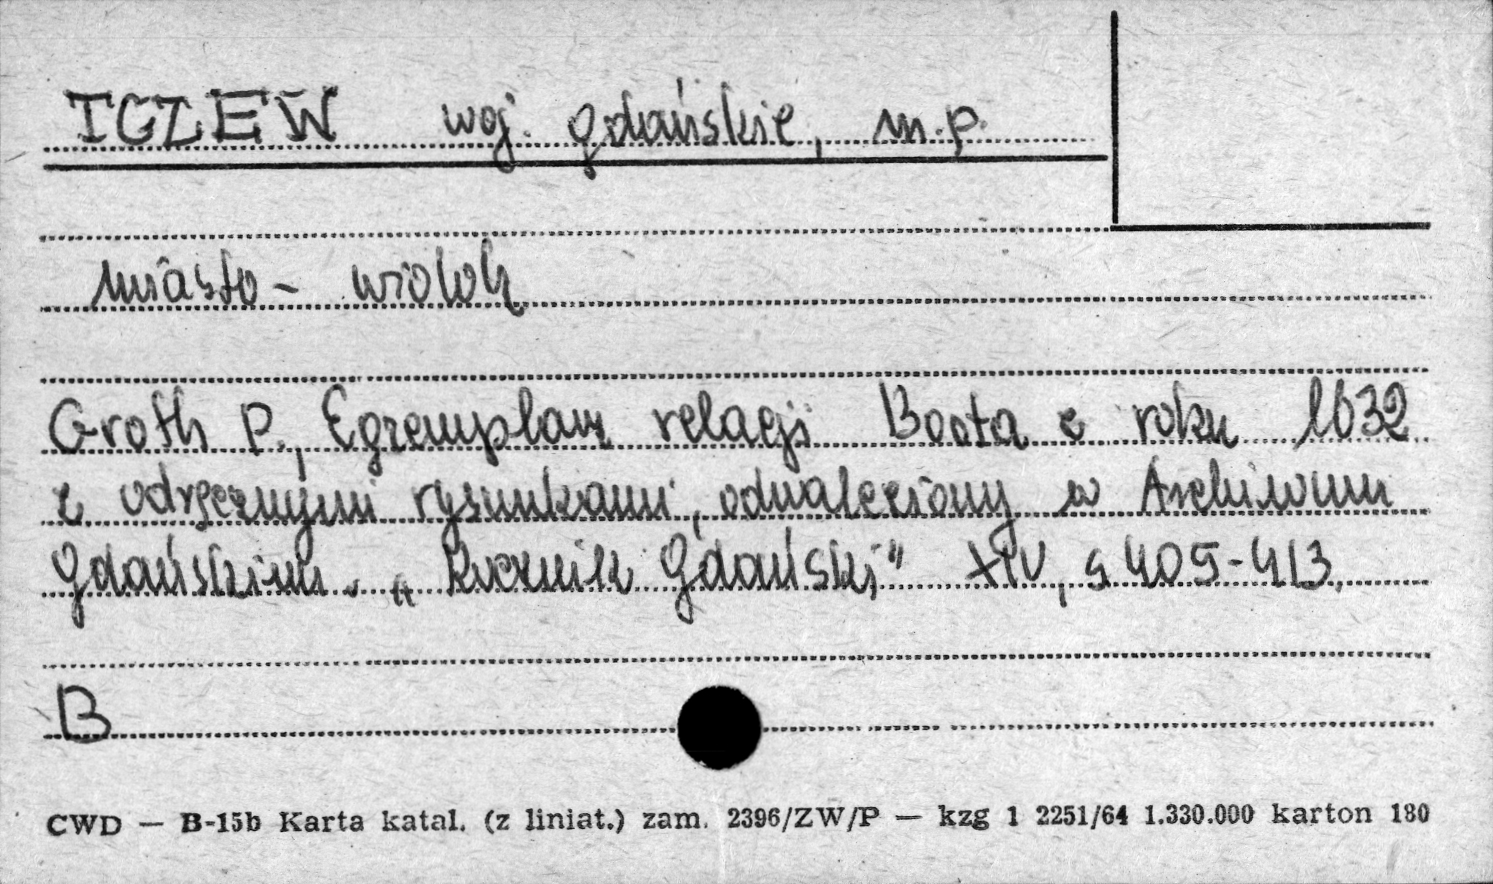 TCZEW woj. gdańskie, m.p.
miasto - widok
Groth P., Egzemplarz relacji Boota z roku 1632
z odręcznymi rysunkami, odnaleziony w Archiwum
Gdańskim. „Rocznik Gdański" XIV, s 405-413.
B
CWD — B-15b Karta katal. (z liniat.) zam. 2396/ZW/P — kzg 1 2251/64 1.330.000 karton 180